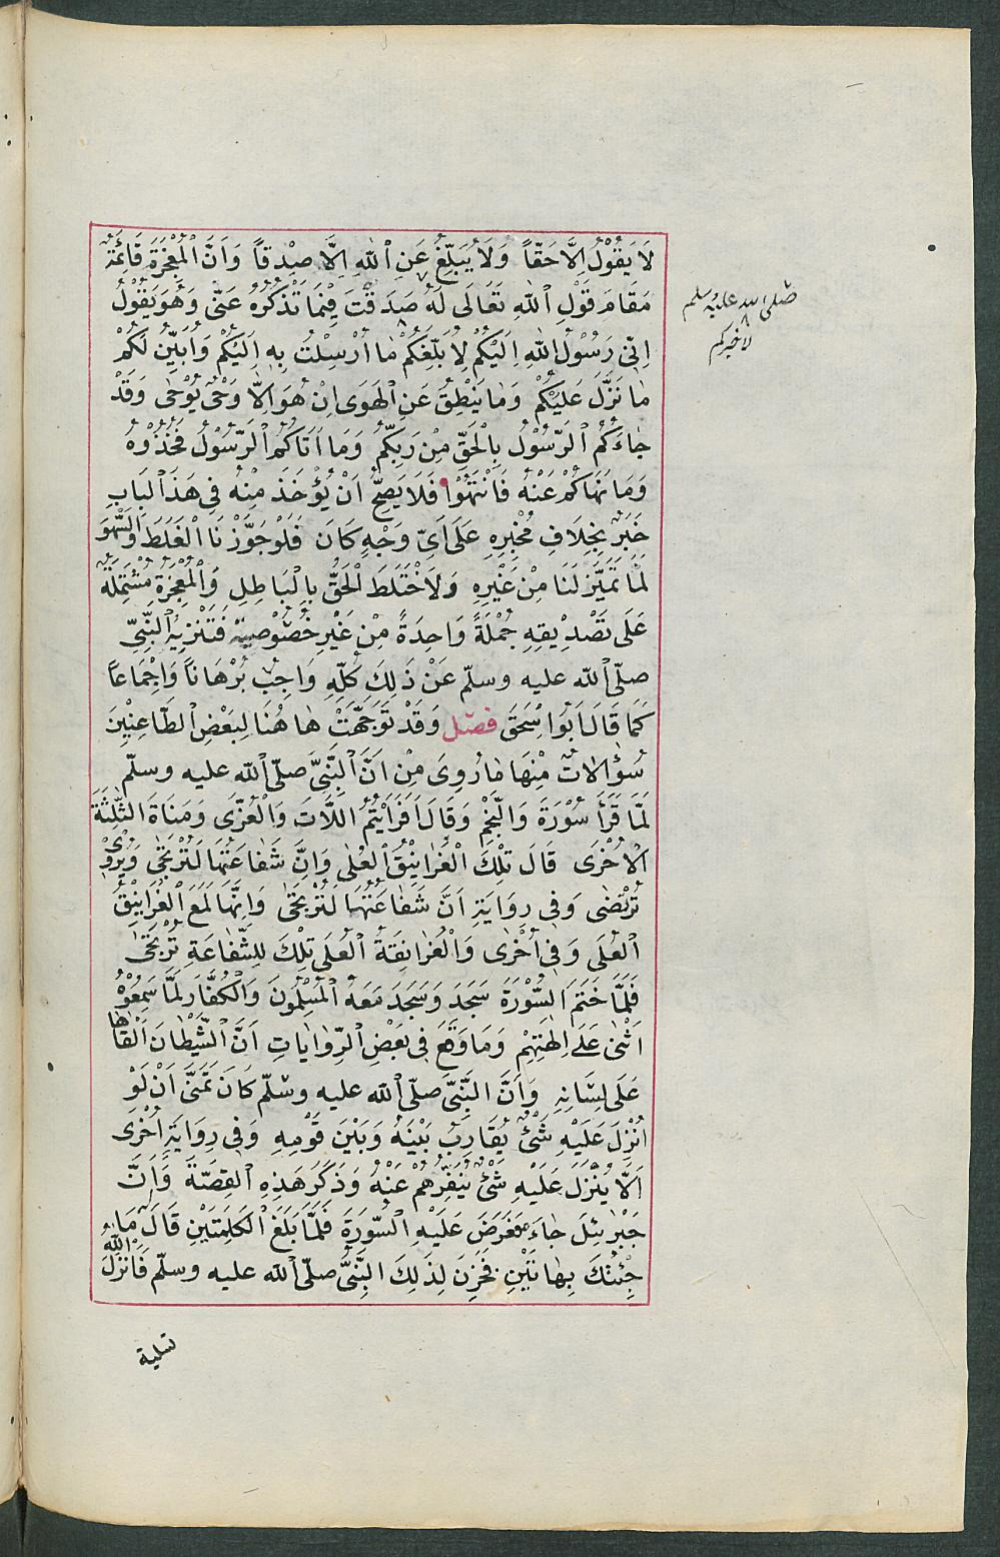 لَا يَقُوْلُ اِلَّا حَقّاً وَلَا يُبَلِّغُ عَنِ اللهِ اِلَّا صِدْقاً وَاَنَّ الْمُعْجِزَةَ قَائِمَةٌ
مَقَامَ قَوْلِ اللهِ تَعَالَى لَهُ صَدَقْتَ فِيْمَا تَذْكُرُهُ عَنّى وَهُوَ يَقُوْلُ
اِنّى رَسُوْلُ اللهِ اِلَيْكُمْ لِاُبَلِّغَكُمْ مَا اُرْسِلْتُ بِهِ اِلَيْكُمْ وَاُبَيِّنَ لَكُمْ
مَا نُزِّلَ عَلَيْكُمْ وَمَا يَنْطِقُ عَنِ الْهَوَى اِنْ هُوَ اِلَّا وَحْىٌ يُوْحٰى وَقَدْ
جَاءَكُمُ الرَّسُوْلُ بِالْحَقِّ مِنْ رَبِّكُمْ وَمَا اٰتَاكُمُ الرَّسُوْلُ فَخُذُوْهُ
وَمَا نَهَاكُمْ عَنْهُ فَانْتَهُوْا فَلَا يَصِحُّ اَنْ يُؤْخَذَ مِنْهُ فِى هَذَا الْبَابِ
خَبَرٌ بِخِلَافِ مُخْبِرِهِ عَلَى اَىِّ وَجْهٍ كَانَ فَلَوْ جَوَّزْنَا الْغَلَطَ وَالسَّهْوَ
لَمَا تَمَيَّزَ لَنَا مِنْ غَيْرِهِ وَلَاخْتَلَطَ الْحَقُّ بِالْبَاطِلِ وَالْمُعْجِزَةُ مُشْتَمِلَةٌ
عَلَى تَصْدِيْقِهِ جُمْلَةً وَاحِدَةً مِنْ غَيْرِ خُصُوْصِيَّةٍ فَتَنْزِيْهُ النَّبِىِّ
صلّى الله عليه وسلّم عَنْ ذَلِكَ كُلِّهِ وَاجِبٌ بُرْهَاناً وَاِجْمَاعاً
كَمَا قَالَ اَبُوا اِسْحَقَ فصل وَقَدْ تَوَجَّهَتْ هَاهُنَا لِبَعْضِ الطَّاعِنِيْنَ
سُؤَالَاتٌ مِنْهَا مَا رُوِىَ مِنْ اَنَّ النَّبِىَّ صلّى الله عليه وسلّم
لَمَّا قَرَأَ سُوْرَةَ وَالنَّجْمِ وَقَالَ اَفَرَاَيْتُمُ اللَّاتَ وَالْعُزَّى وَمَنَاةَ الثَّالِثَةَ
الْاُخْرَى قَالَ تِلْكَ الْغَرَانِيْقُ الْعُلٰى وَاِنَّ شَفَاعَتَهَا لَتُرْتَجٰى وَيُرْوٰى
تُرْتَضٰى وَفى رِوَايَةٍ اِنَّ شَفَاعَتَهَا لَتُرْتَجَىٰ وَاِنَّهَا لَمَعَ الْغَرَانِيْقِ
الْعُلَى وَفِى اُخْرَى وَالْغَرَانِقَةُ الْعُلَى تِلْكَ لِلشَّفَاعَةِ تُرْتَجَىٰ
فَلَمَّا خَتَمَ السُّوْرَةَ سَجَدَ وَسَجَدَ مَعَهُ الْمُسْلِمُونَ وَالْكُفَّارُ لَمَّا سَمِعُوْهُ
اَثْنىٰ عَلَى اٰلِهَتِهِمْ وَمَا وَقَعَ فِى بَعْضِ الرِّوَايَاتِ اَنَّ الشَّيْطَانَ اَلْقَاهَا
عَلَى لِسَانِهِ وَاَنَّ النَّبِىَّ صلّى الله عليه وسلّم كَانَ تَمَنَّى اَنْ لَوْ
اُنْزِلَ عَلَيْهِ شَىْءٌ يُقَارِبُ بَيْنَهُ وَبَيْنَ قَوْمِهِ وَفى رِوَايَةٍ اُخْرَى
اَلَّا يُنْزَلَ عَلَيْهِ شَىْءٌ يُنَفِّرُهُمْ عَنْهُ وَذَكَرَ هَذِهِ الْقِصَّةَ وَاَنَّ
جِبْرَئِيلَ جَاءَهُ فَعَرَضَ عَلَيْهِ السُّوْرَةَ فَلَمَّا بَلَغَ الْكَلِمَتَيْنِ قَالَ مَا
جِئْتُكَ بِهَاتَيْنِ فَحَزِنَ لِذَلِكَ النَّبِىُّ صلّى الله عليه وسلّم فَاَنْزَلَ اللهُ
تسلية
صلى الله عليه وسلم